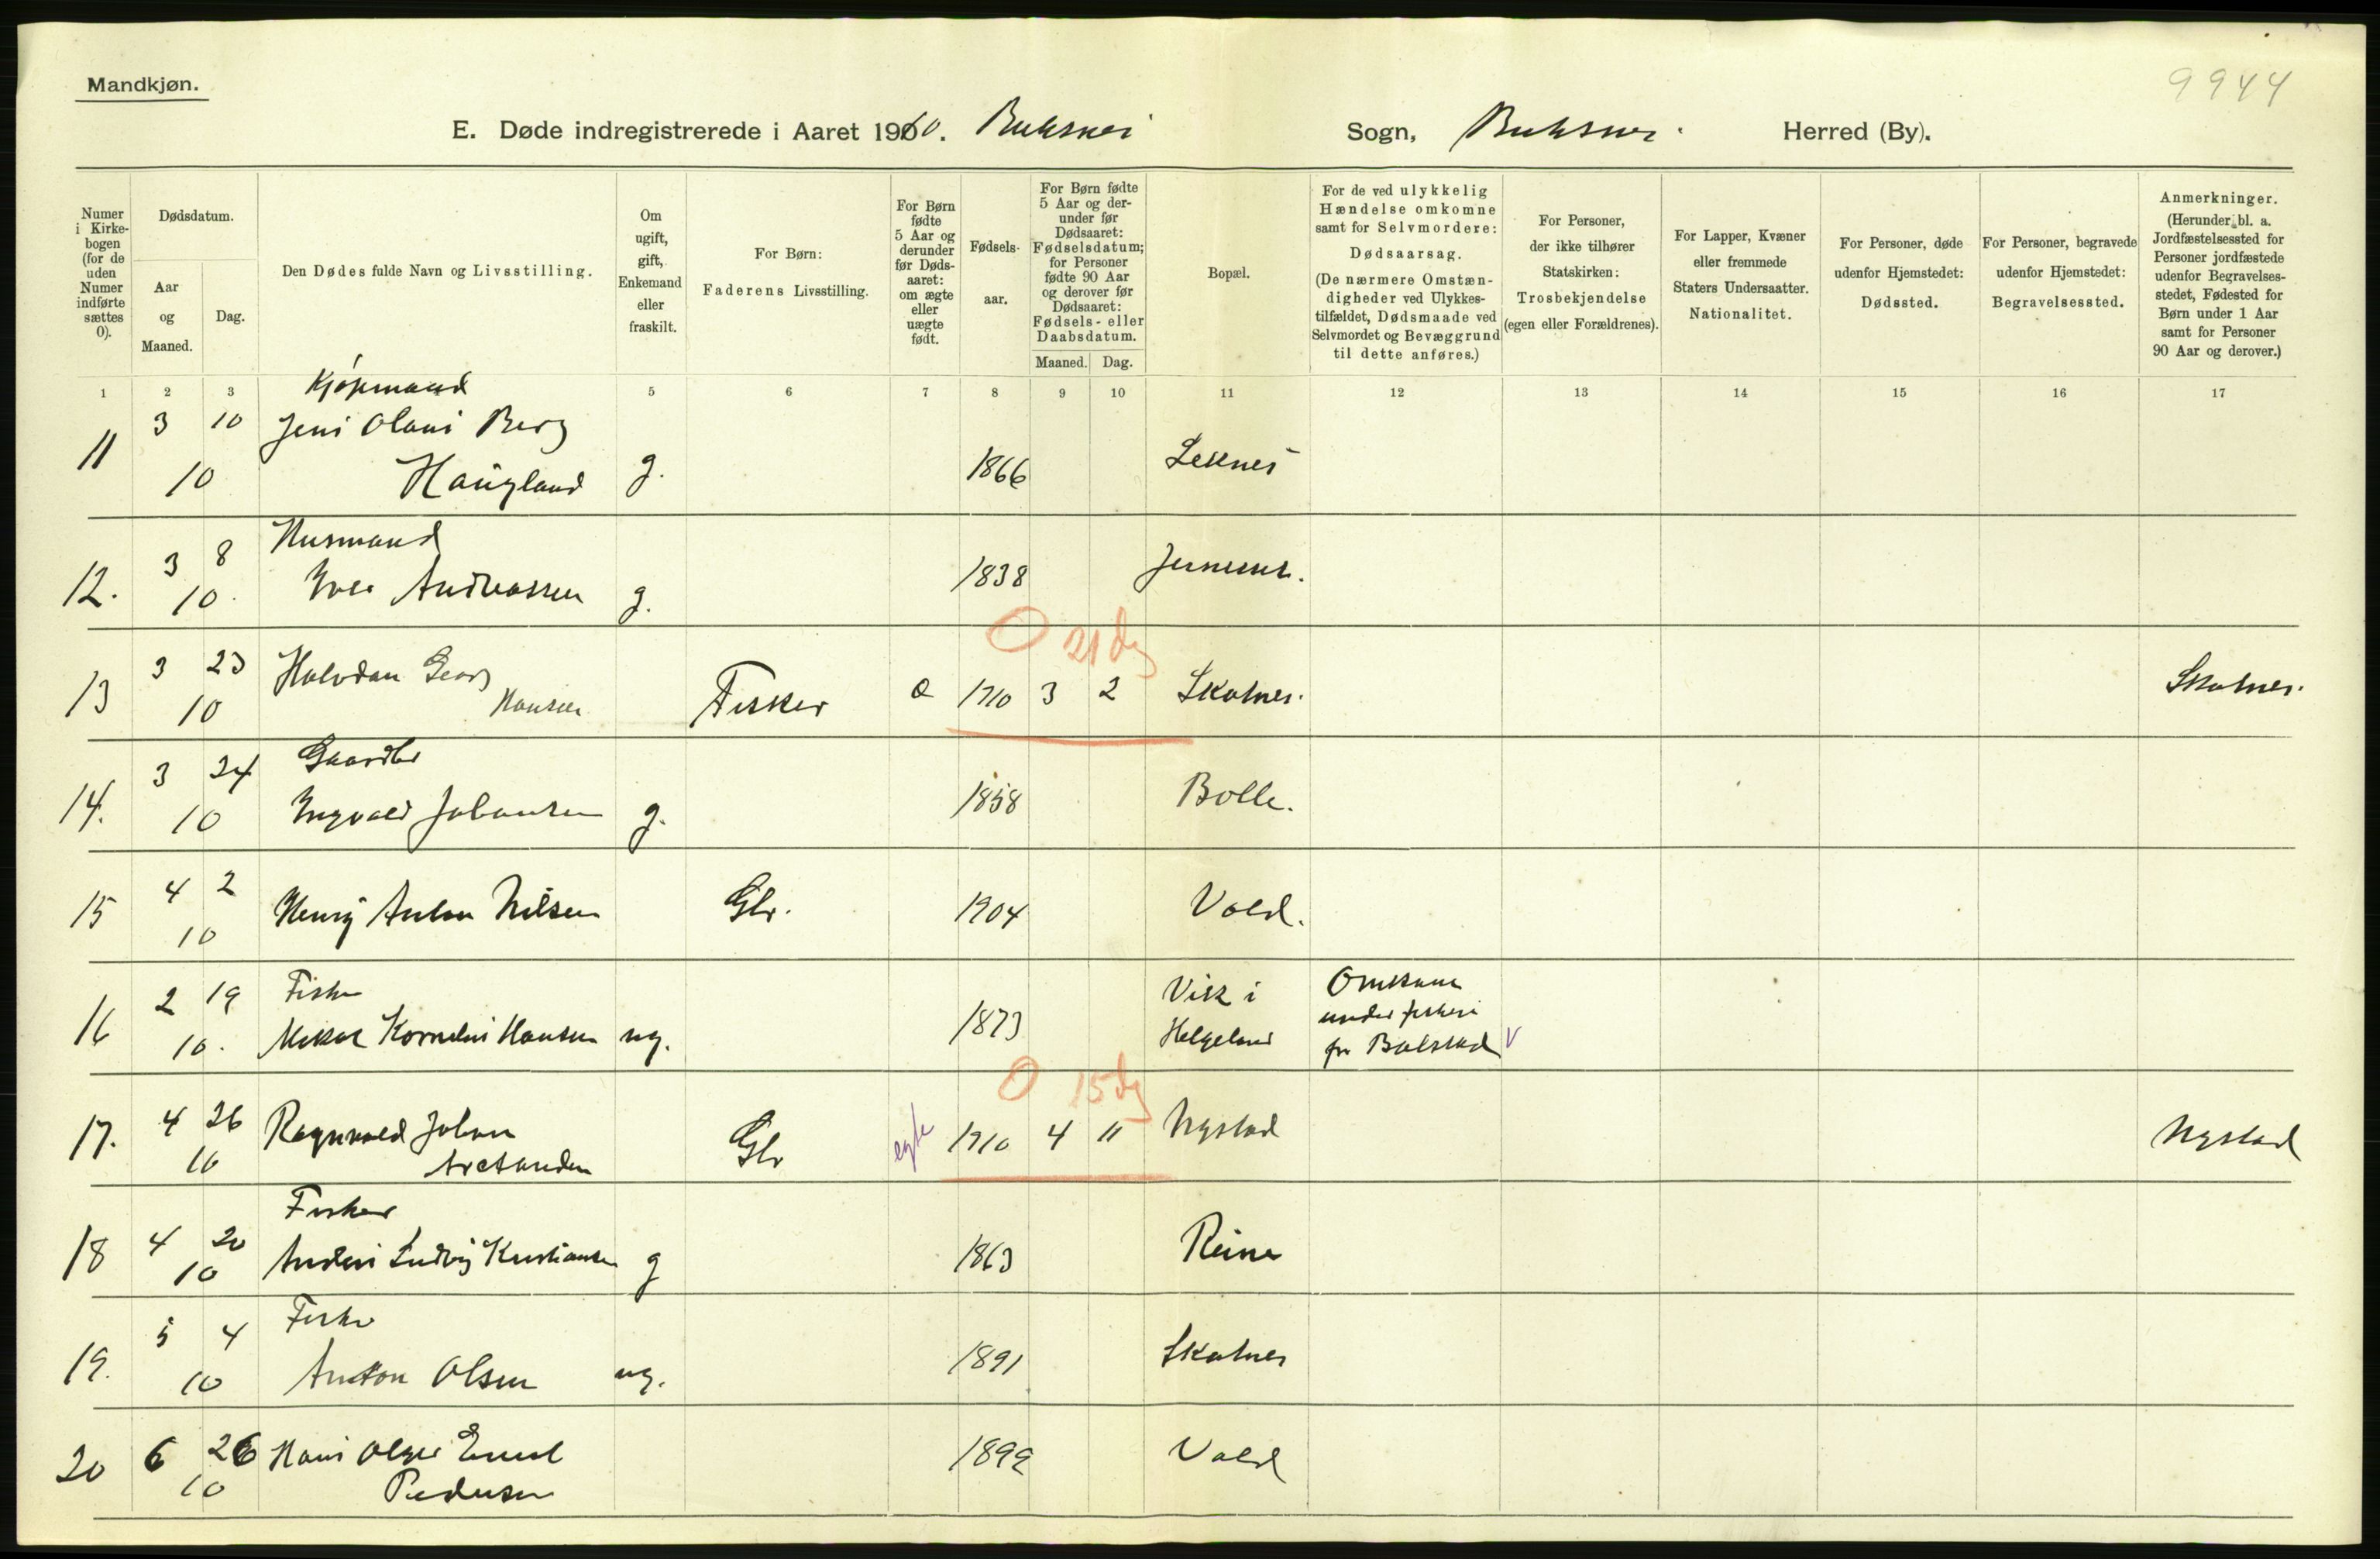 9944
Mandkjøn.
E. Døde indregistrerede i Aaret 1910. Buksnes Sogn, Buksnes Herred (By).
Numer i Kirkebogen (for de uden Numer indførte sættes 0).
Dødsdatum.
Aar og Maaned.
Dag.
Den Dødes fulde Navn og Livsstilling.
Om ugift, gift, Enkemand eller fraskilt.
For Børn: Faderens Livsstilling.
For Børn fødte 5 Aar og derunder før Dødsaaret: om ægte eller uægte født.
Fødselsaar.
For Børn fødte 5 Aar og derunder før Dødsaaret: Fødselsdatum; for Personer fødte 90 Aar og derover før Dødsaaret: Fødsels- eller Daabsdatum.
Maaned. Dag.
Bopæl.
For de ved ulykkelig Hændelse omkomne samt for Selvmordere: Dødsaarsag. (De nærmere Omstændigheder ved Ulykkestilfældet, Dødsmaade ved Selvmordet og Bevæggrund til dette anføres.)
For Personer, der ikke tilhører Statskirken: Trosbekjendelse (egen eller Forældrenes).
For Lapper, Kvæner eller fremmede Staters Undersaatter. Nationalitet.
For Personer, døde udenfor Hjemstedet: Dødssted.
For Personer, begravede udenfor Hjemstedet: Begravelsessted.
Anmerkninger. (Herunder bl. a. Jordfæstelsessted for Personer jordfæstede udenfor Begravelsesstedet, Fødested for Børn under 1 Aar samt for Personer 90 Aar og derover.)
1 2 3 5 6 7 8 9 10 11 12 13 14 15 16 17
Kjøpmand
3 10 Jens Olaus Berg
11 10 Haugland g. 1866 Leknes
Husmand
3 8
12. 10 Andreassen g. 1838
O 21 dg
3 23 Halvdan Georg
13 10 Hansen Fisker 1910 3 2 Skotnes. Skotnes.
Gaardbr
3 24
14. 10 Ingvald Johansen g. 1858 Bolle.
4 2
15 10 Henry Anton Nilsen Gbr. 1904 Vold.
2 19 Fisker Vik i Omkom
16 10. Kornelius Hansen ug. 1873 Helgeland under fiskeri
fra Balstad V
O 15 dg
4 26 Ragnvald Johan
17. 10 Gbr egte 1910 4 11 Nystad Nystad
Fisker
4 20
18 10 Anders Ludvig Kristiansen g 1863 Reine
5 4 Fisker
19. 10 Anton Olsen ug. 1891 Skotnes
6 26 Hans
20 10 Pedersen 1899 Vold